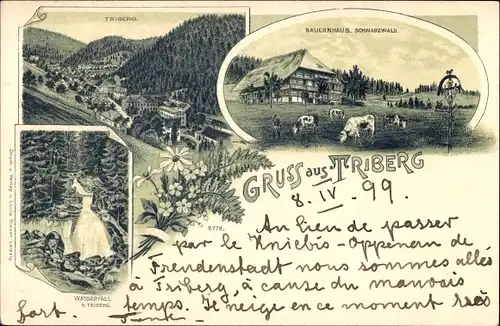 TRIBERG.
BAUERNHAUS, SCHWARZWALD.
GRUSS aus TRIBERG
8. IV. 99.
5776.
WASSERFALL
b. TRIBERG.
Au lieu de passer
par le Kniebis-Oppenau de
Freudenstadt nous sommes allés
à Triberg, à cause du mauvais
temps. Il neige en ce moment très
fort.